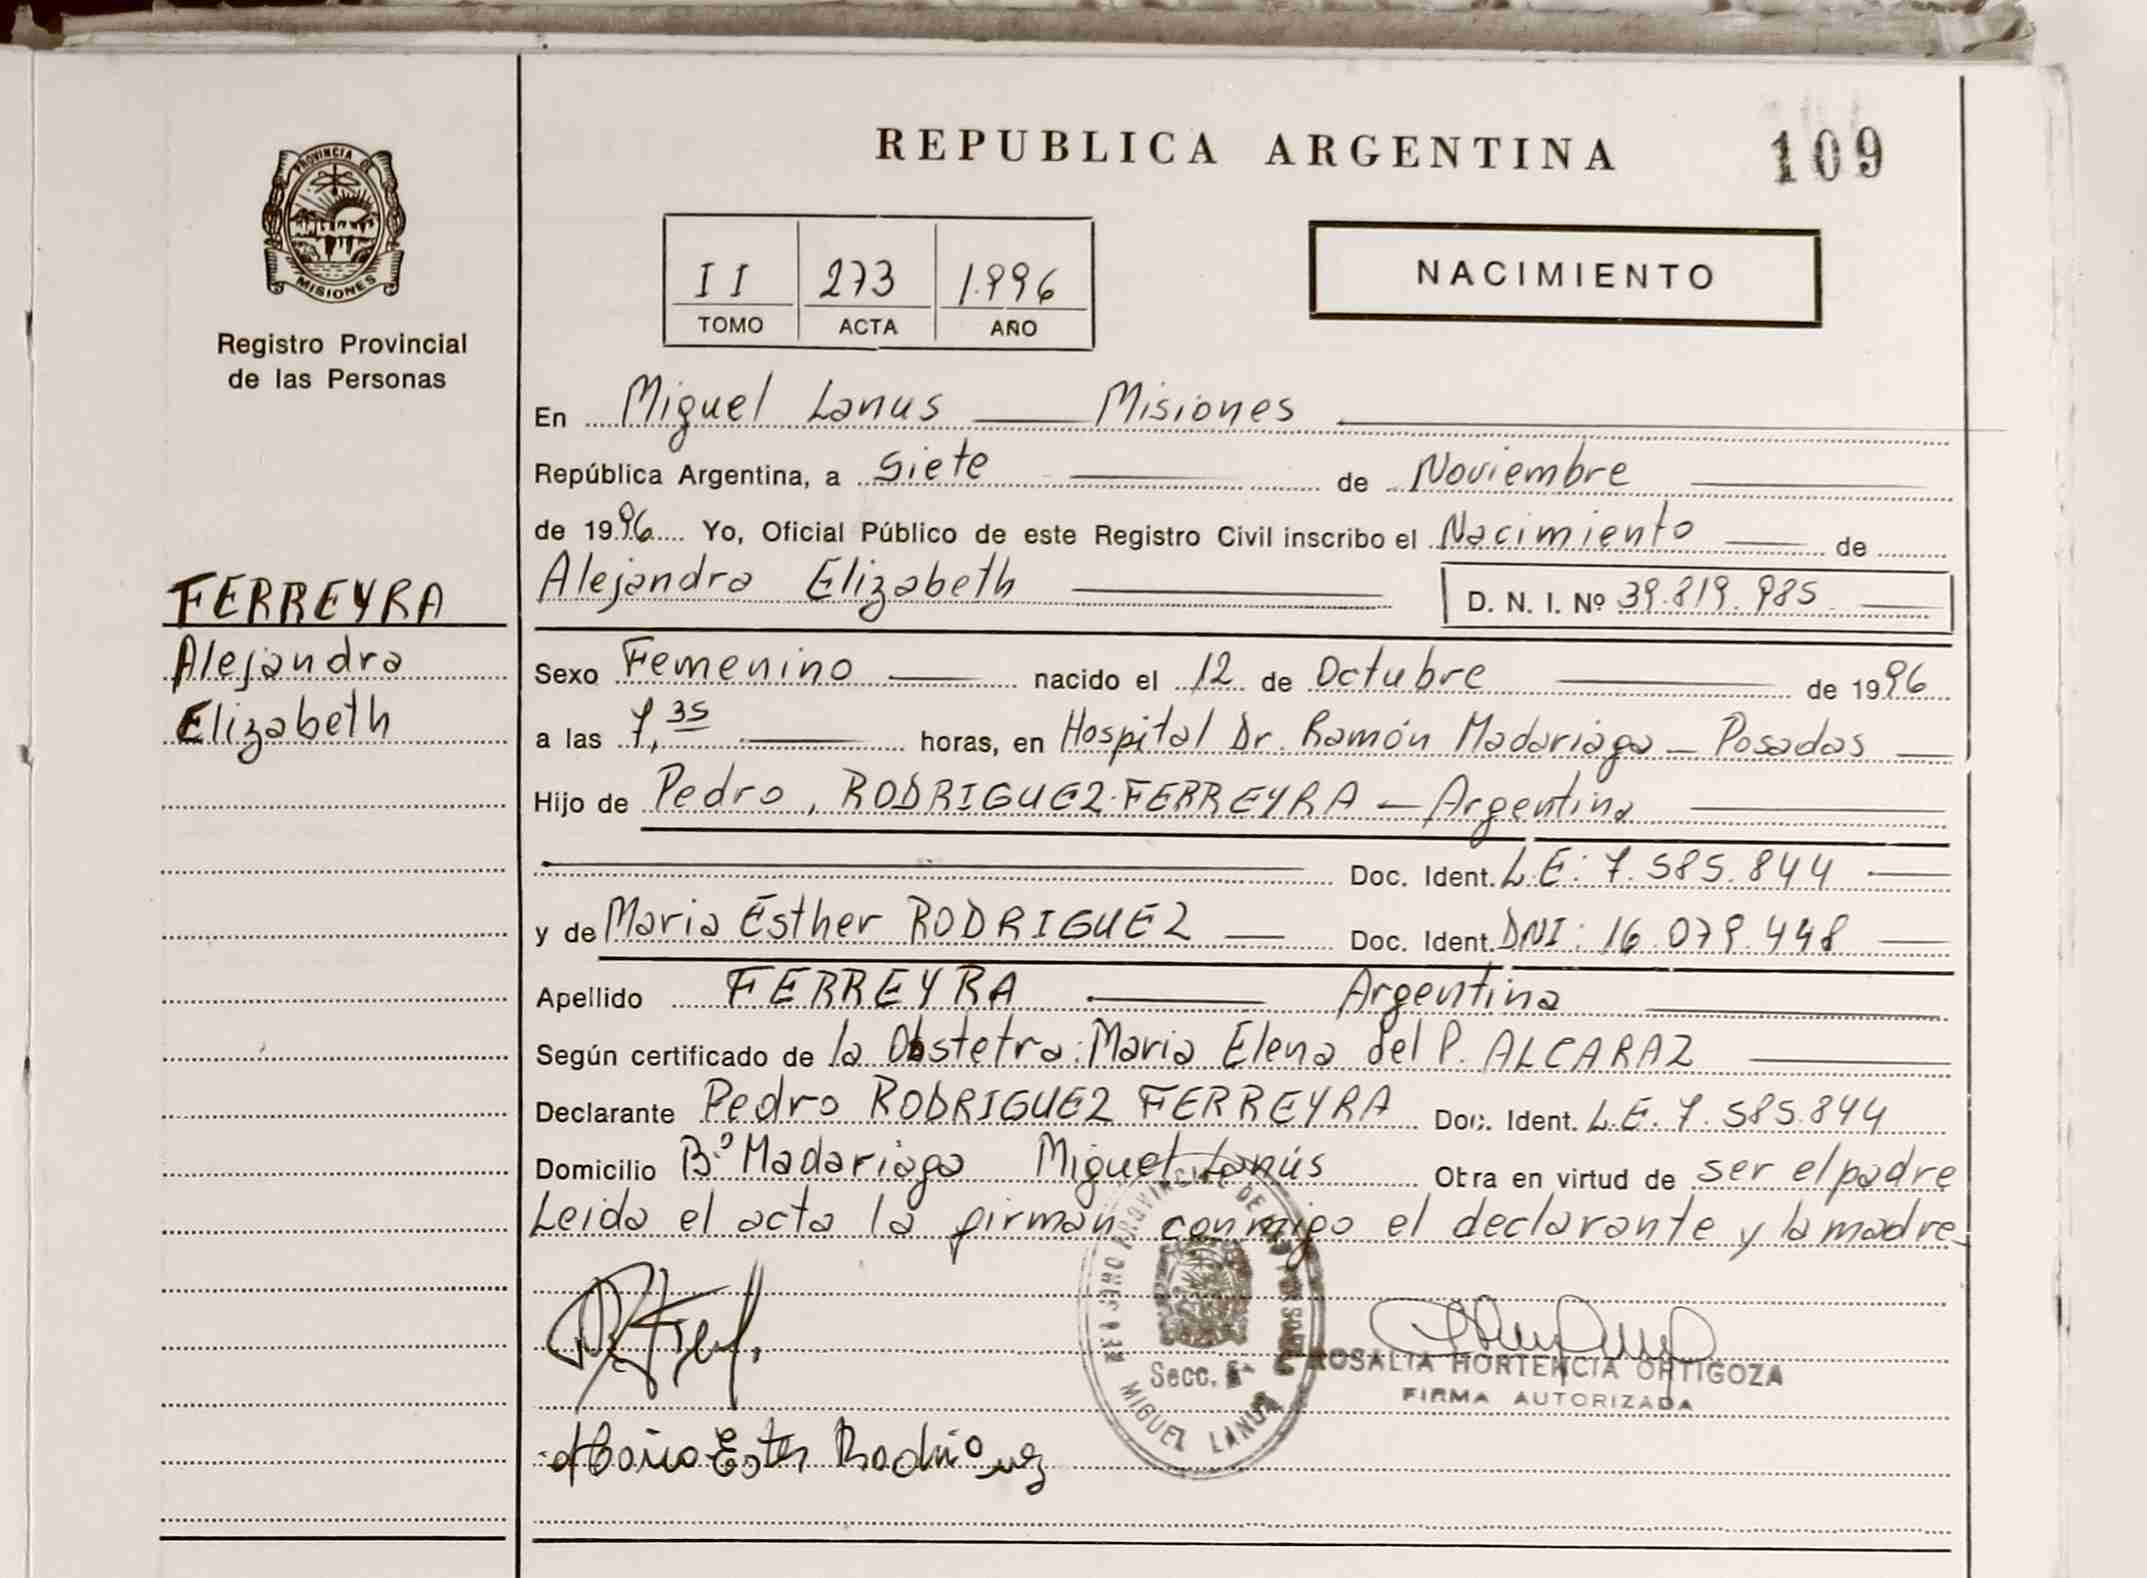 REPUBLICA ARGENTINA
109
PROVINCIA DE
MISIONES
Registro Provincial
de las Personas
II 273 1.996
TOMO ACTA AÑO
NACIMIENTO
En Miguel Lanus Misiones
República Argentina, a Siete de Noviembre
de 1996 Yo, Oficial Público de este Registro Civil inscribo el Nacimiento de
Alejandra Elizabeth D. N. I. Nº 39.819.985
FERREYRA
Alejandra
Elizabeth
Sexo Femenino nacido el 12 de Octubre de 1996
a las 7,35 horas, en Hospital Dr. Ramón Madariaga - Posadas
Hijo de Pedro, RODRIGUEZ FERREYRA - Argentina
Doc. Ident. L.E: 7.585.844
y de Maria Esther RODRIGUEZ Doc. Ident. DNI: 16.079.448
Apellido FERREYRA Argentina
Según certificado de la Obstetra: Maria Elena del P. ALCARAZ
Declarante Pedro RODRIGUEZ FERREYRA Doc. Ident. L.E. 7.585.844
Domicilio Bº Madariaga Miguel Lanús Obra en virtud de ser el padre
Leida el acta la firman conmigo el declarante y la madre
Secc. MIGUEL LANUS
ROSALIA HORTENCIA ORTIGOZA
FIRMA AUTORIZADA
Maria Ester Rodriguez